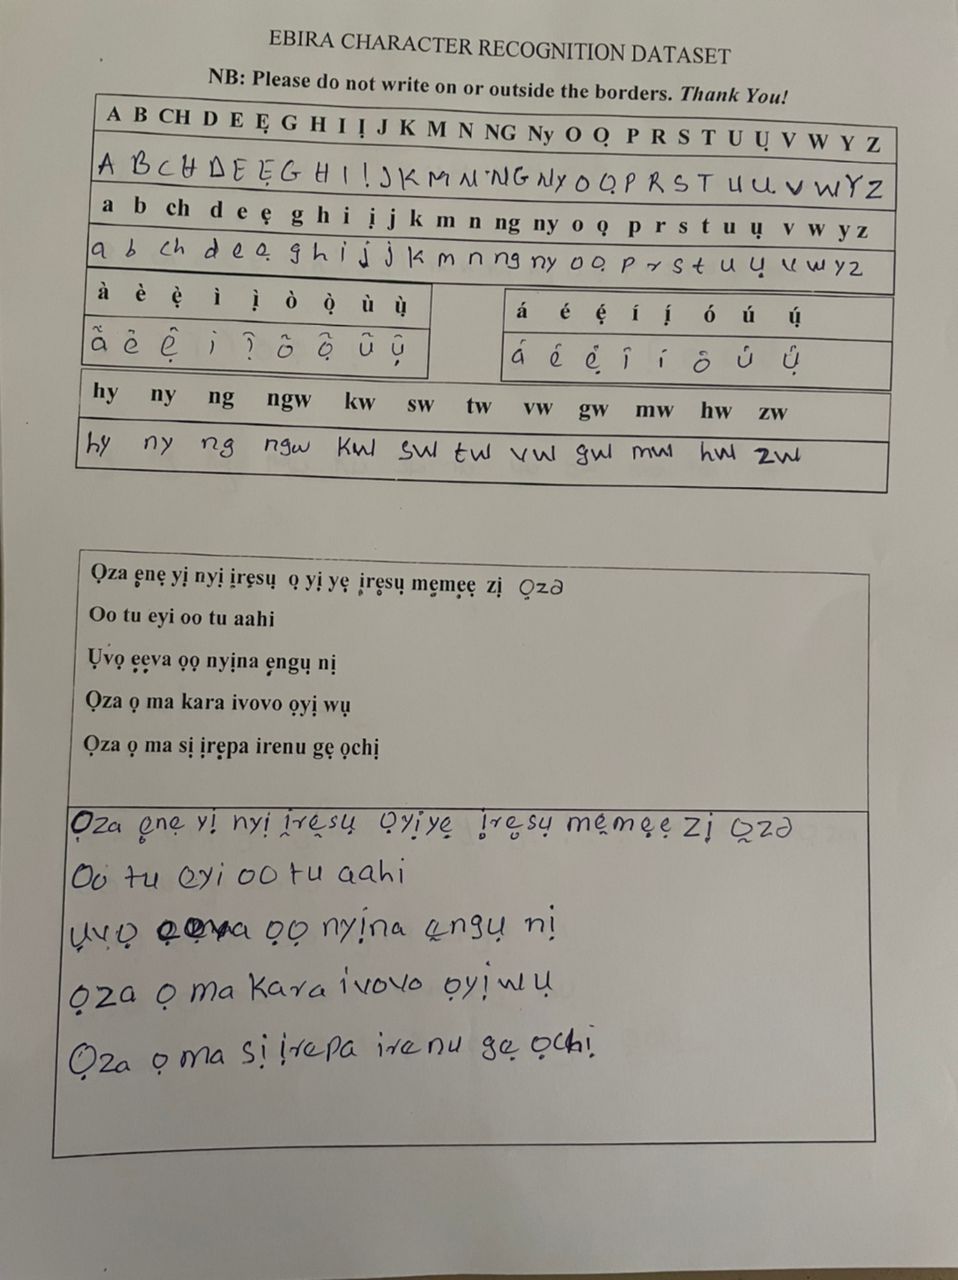 EBIRA CHARACTER RECOGNITION DATASET
NB: Please do not write on or outside the borders. Thank You!
A B CH D E Ẹ G H I Ị J K M N NG Ny O Ọ P R S T U Ụ V W Y Z
A B CH D E Ẹ G H I Ị J K M N NG Ny O Ọ P R S T U Ụ V W Y Z
a b ch d e ẹ g h i ị j k m n ng ny o ọ p r s t u ụ v w y z
a b ch d e ẹ g h i ị j k m n ng ny o ọ p r s t u ụ v w y z
à è ẹ̀ ì ị̀ ò ọ̀ ù ụ̀
ã ẽ ẹ̑ ì ị̑ ȏ ọ̑ ȗ ụ̑
á é ẹ́ í ị́ ó ú ụ́
á é ẹ́ ȋ í ȏ ú ụ́
hy ny ng ngw kw sw tw vw gw mw hw zw
hy ny ng ngw kw sw tw vw gw mw hw zw
Ọza ẹnẹ yị nyị ịrẹsụ ọ yị yẹ ịrẹsụ mẹmẹẹ zị ọza
Oo tu eyi oo tu aahi
Ụvọ ẹẹva ọọ nyịna ẹngụ nị
Ọza ọ ma kara ivovo ọyị wụ
Ọza ọ ma sị ịrẹpa irenu gẹ ọchị
Ọza ẹnẹ yị nyị ịrẹsụ ọyịyẹ ịrẹsụ mẹmẹẹ zị ọza
Oo tu eyi oo tu aahi
Ụvọ ẹẹva ọọ nyịna ẹngụ nị
Ọza ọ ma kara ivovo ọyị wụ
Ọza ọ ma sị ịrepa irenu gẹ ọchị